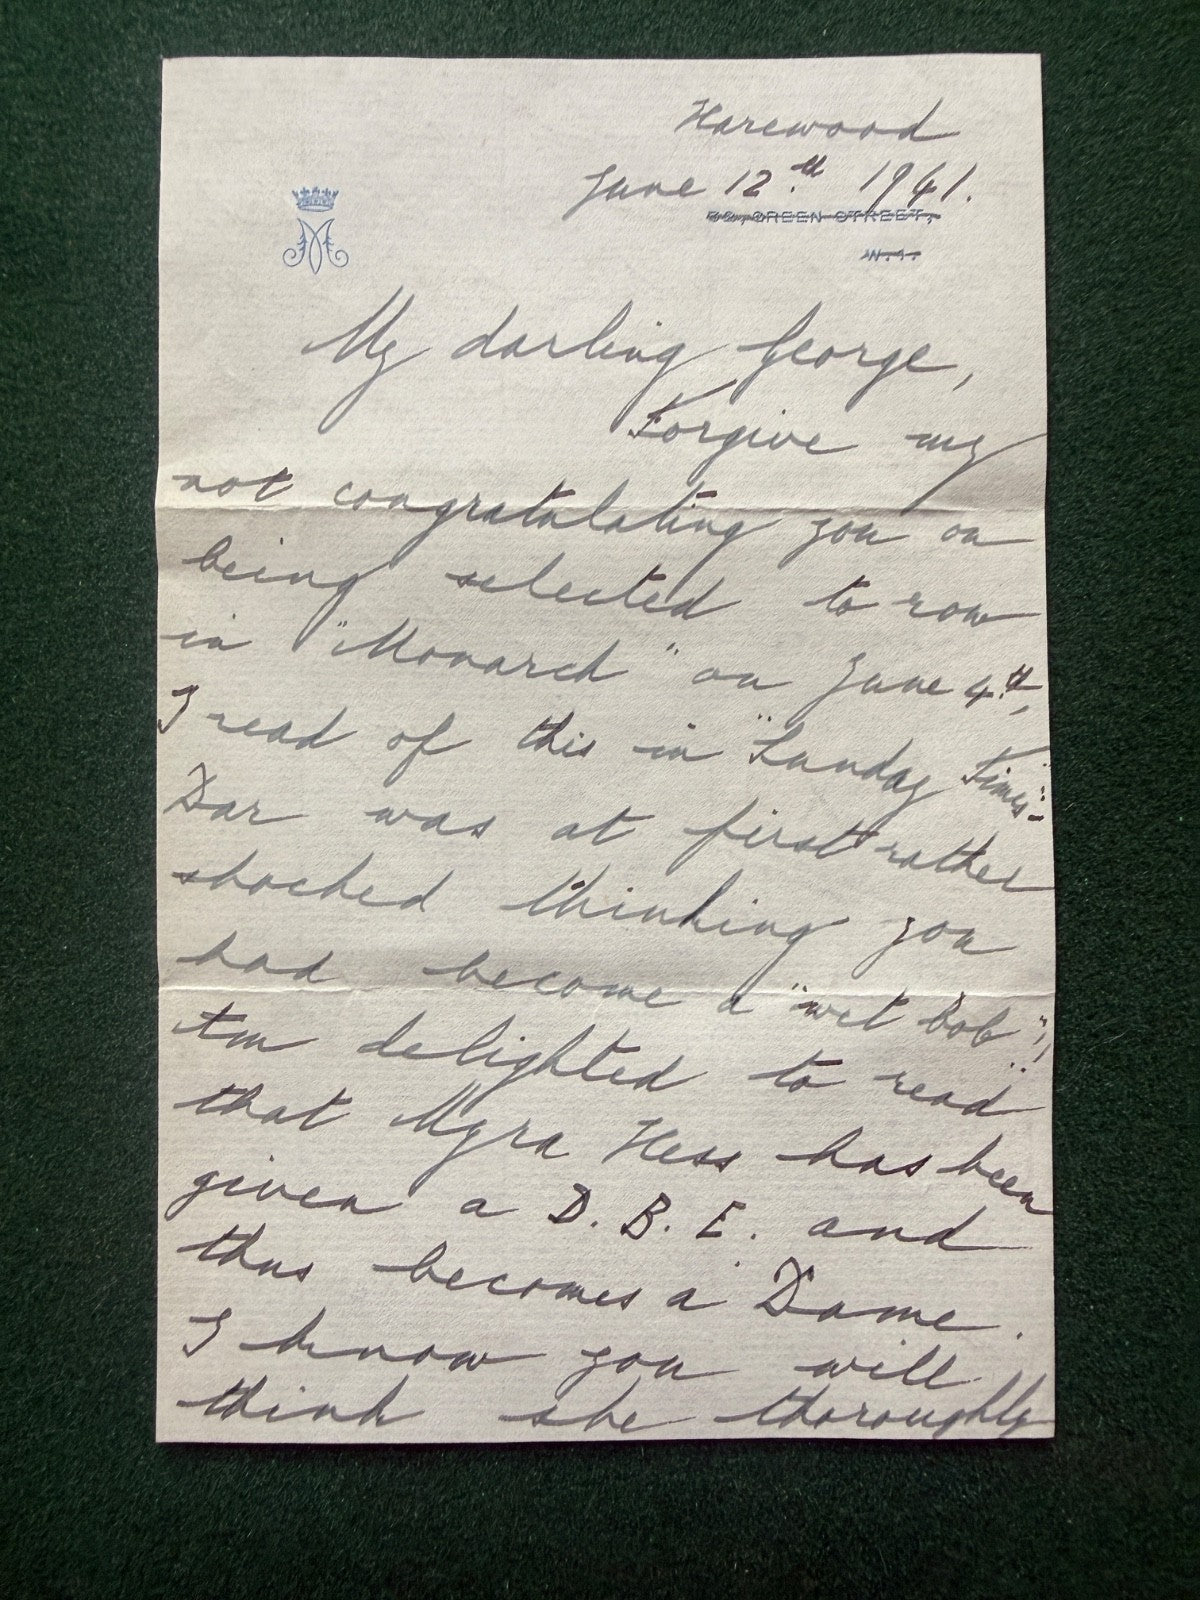 Harewood
June 12.th 1941.
32, GREEN STREET,
W.1.
My darling George,
Forgive my
not congratulating you on
being selected to row
in "Monarch" on June 4.th,
I read of this in "Sunday Times"-
Dar was at first rather
shocked thinking you
had become a "wet bob"!!
I'm delighted to read
that Myra Hess has been
given a D.B.E. and
thus becomes a Dame.
I know you will
think she thoroughly